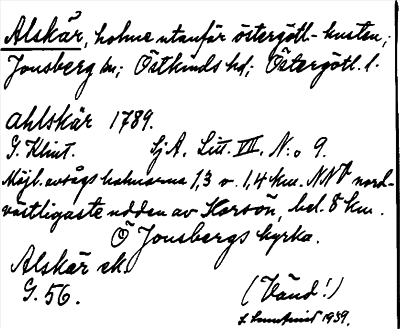 Alskär, holme utanför östergötl-kusten;
Jonsberg sn; Östkinds hd; Östergötl. l.
Ahlskär 1789.
G. Klint. Sj A. Litt. VII. N:o 9.
Möjl. avsågs holmarna 1,3 o. 1,4 km. NNV nord-
västligaste udden av Korsön, bel. 8 km.
Ö Jonsbergs kyrka.
Alskär ek.
G. 56. (Vänd!)
1939.